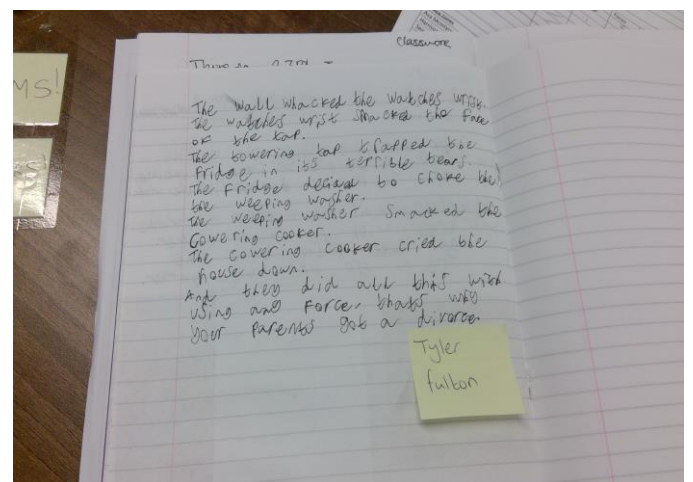 classwork
MS!
The wall whacked the watches wrist.
The watches wrist smacked the face
of the tap.
The towering tap trapped the
fridge in its terrible tears.
The Fridge decided to choke the
the weeping washer.
The weeping washer smacked the
Cowering cooker.
The cowering cooker cried the
house down.
And they did all this with
using any force, thats why
your parents got a divorce.
Tyler
fulton